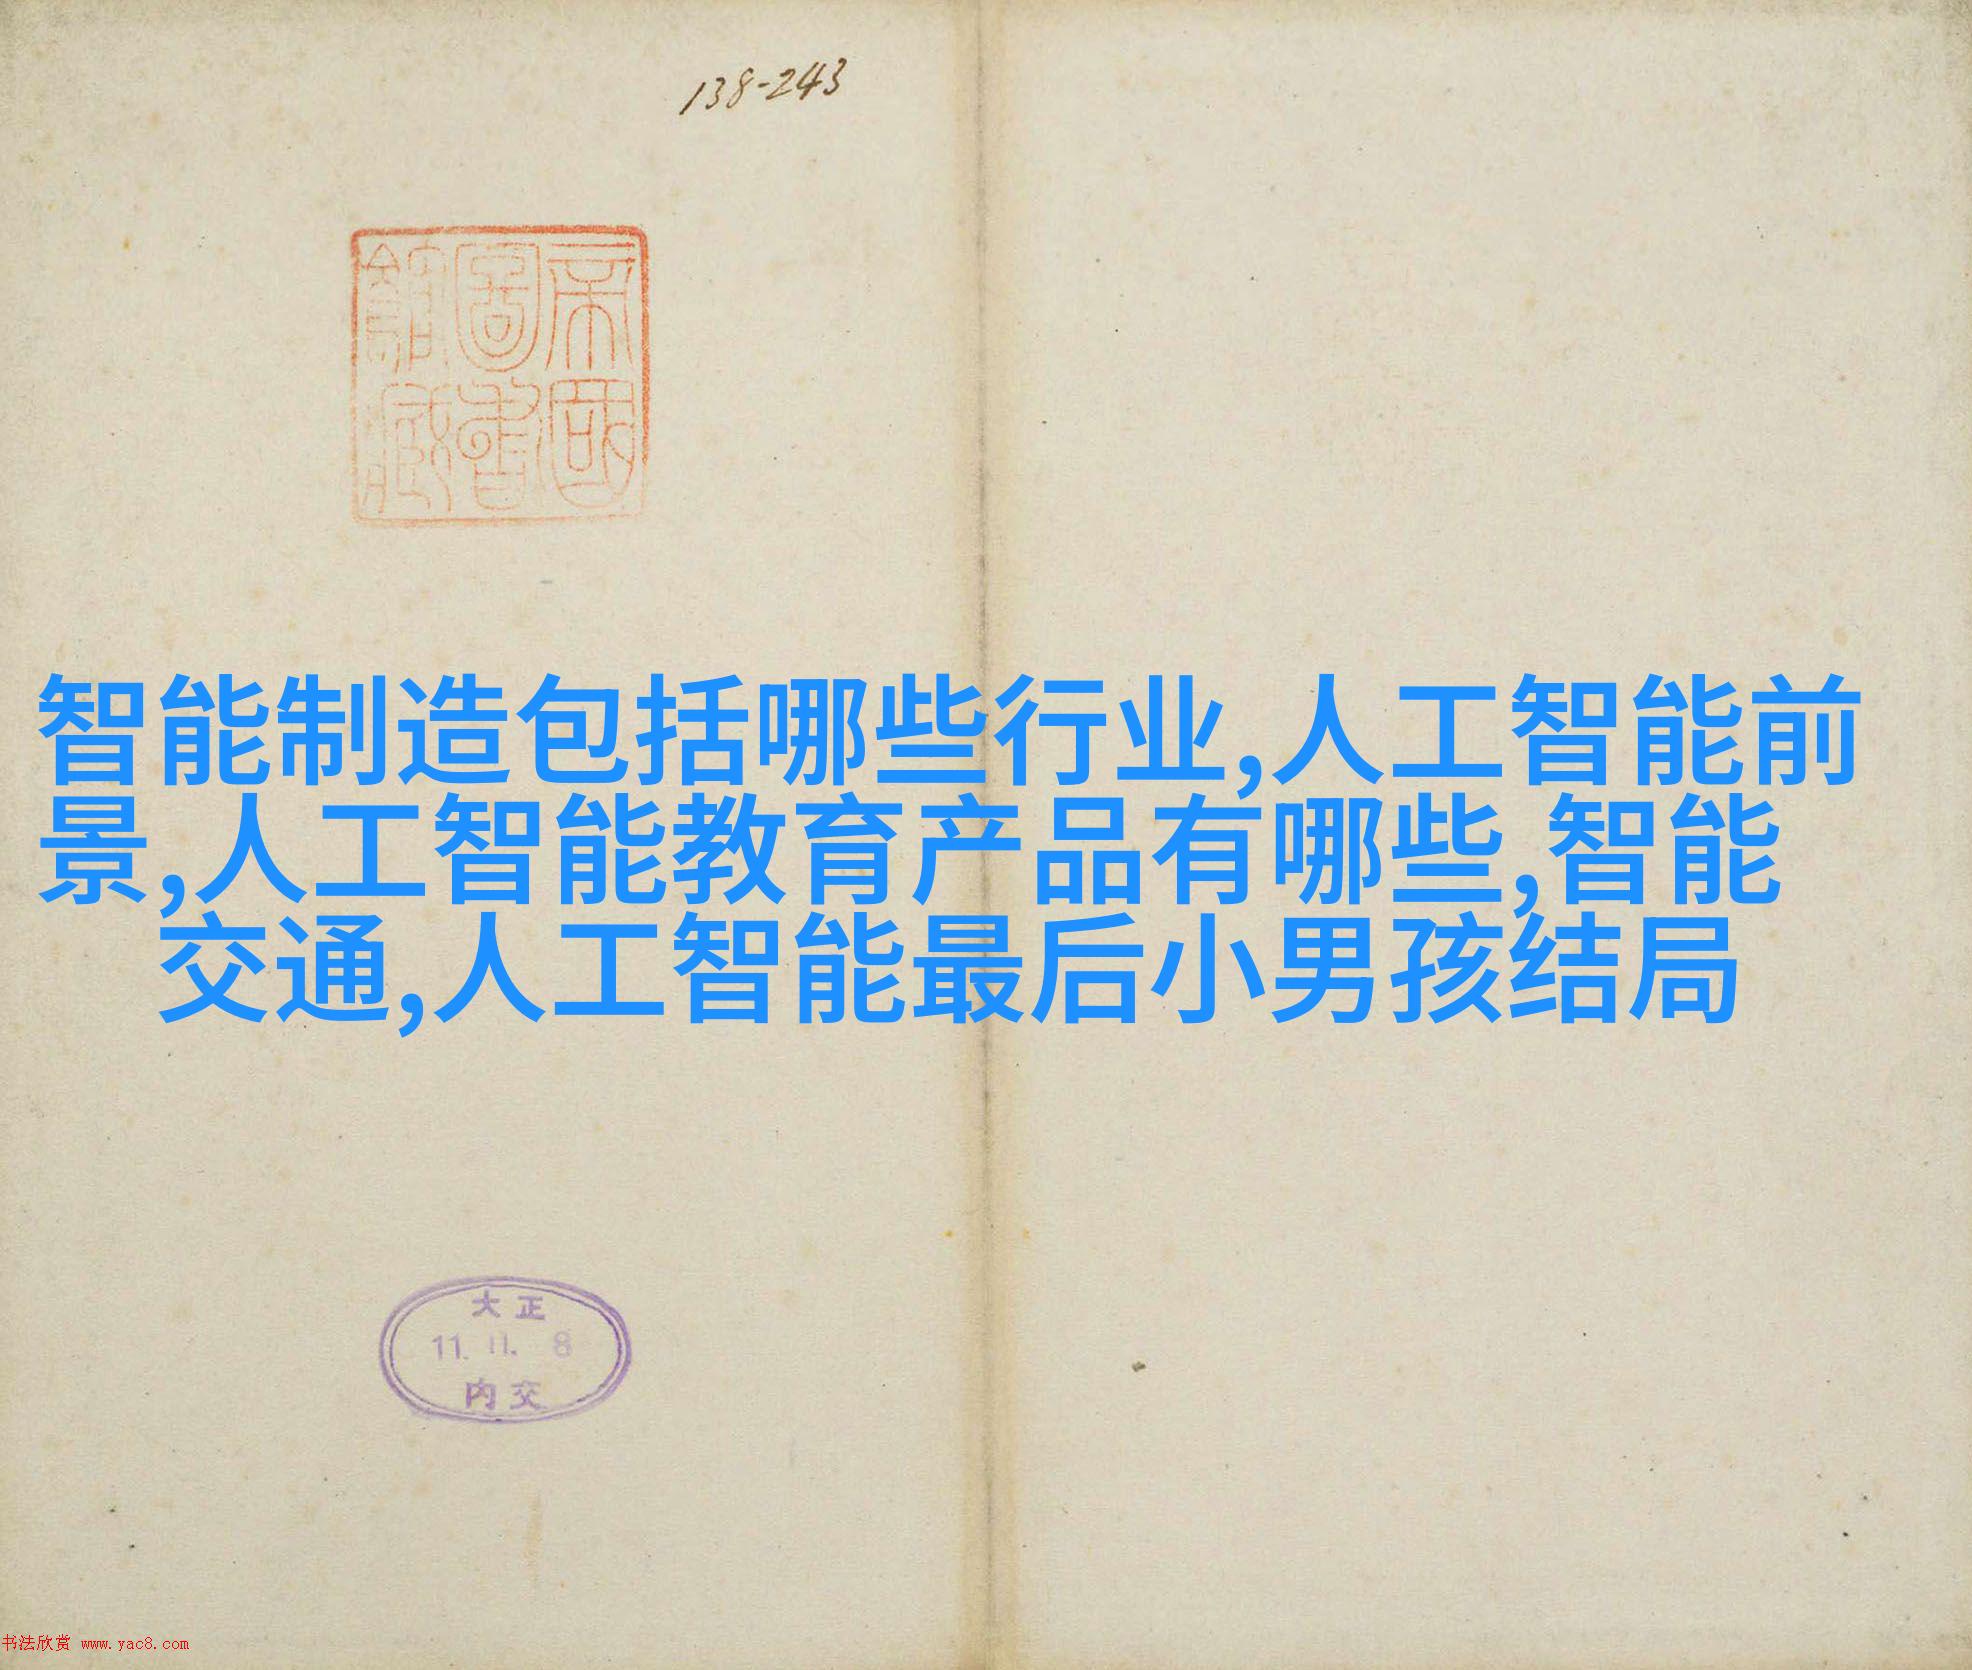 138-243
帝國
圖書
館藏
智能制造包括哪些行业,人工智能前
景,人工智能教育产品有哪些,智能
交通,人工智能最后小男孩结局
大正
11.11.8
内交
书法欣赏 www.yac8.com